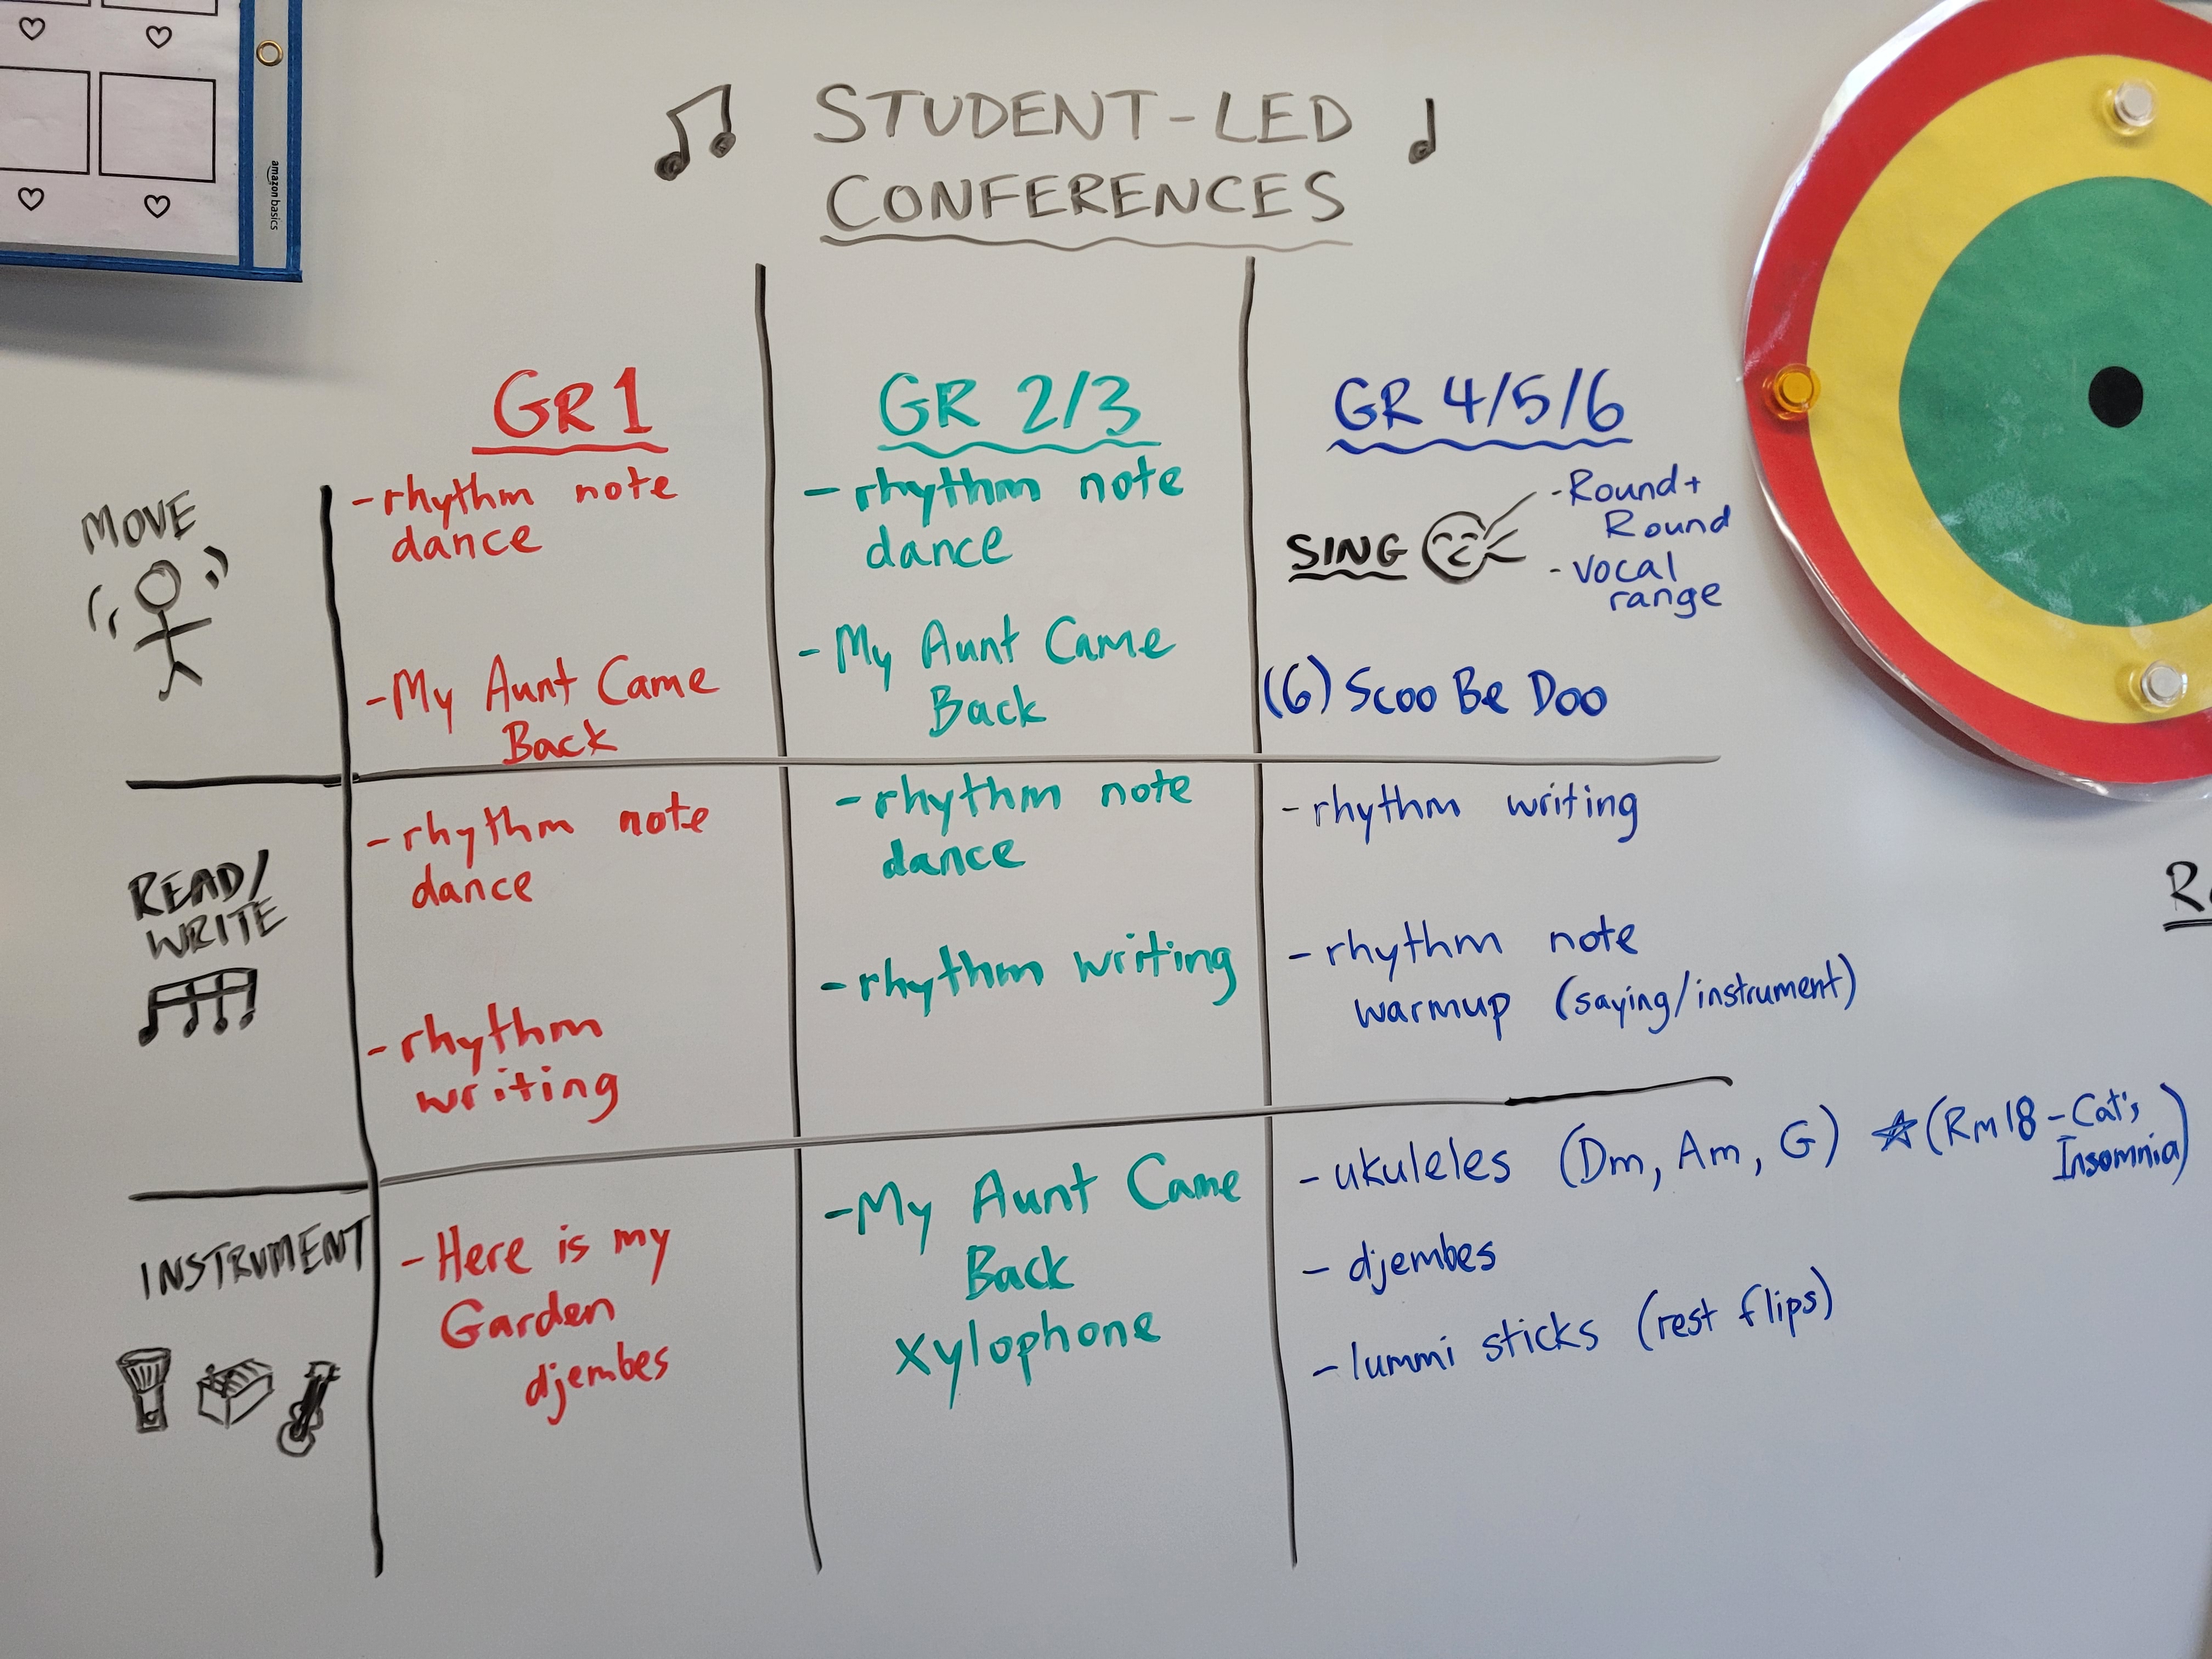 amazon basics
STUDENT-LED
CONFERENCES
GR 1
GR 2/3
GR 4/5/6
MOVE
-rhythm note
dance
-My Aunt Came
Back
-rhythm note
dance
-My Aunt Came
Back
SING
-Round+
Round
-vocal
range
(6) Scoo Be Doo
READ/
WRITE
-rhythm note
dance
-rhythm
writing
-rhythm note
dance
-rhythm writing
-rhythm writing
-rhythm note
warmup (saying/instrument)
INSTRUMENT
-Here is my
Garden
djembes
-My Aunt Came
Back
xylophone
-ukuleles (Dm, Am, G) ☆(Rm 18-Cat's
Insomnia)
-djembes
-lummi sticks (rest flips)